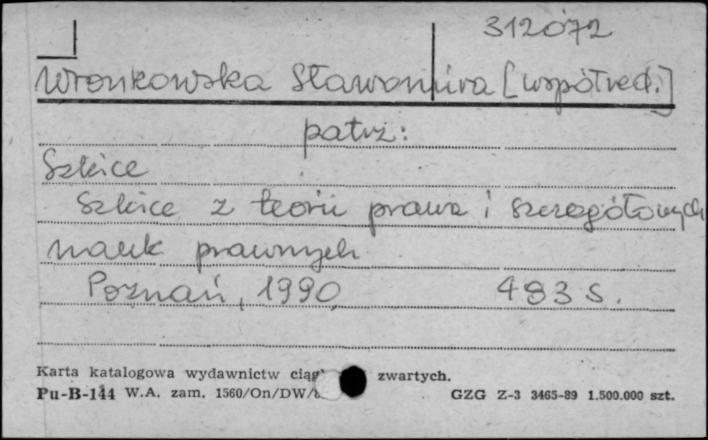 312072
Wronkowska Sławomira [współred.]
patrz:
Szkice
Szkice z teorii prawa i szczegółowych
nauk prawnych
Poznań, 1990 483 s.
Karta katalogowa wydawnictw zwartych.
Pu-B-144 W.A. zam. 1560/On/DW/ GZG Z-3 3465-89 1.500.000 szt.